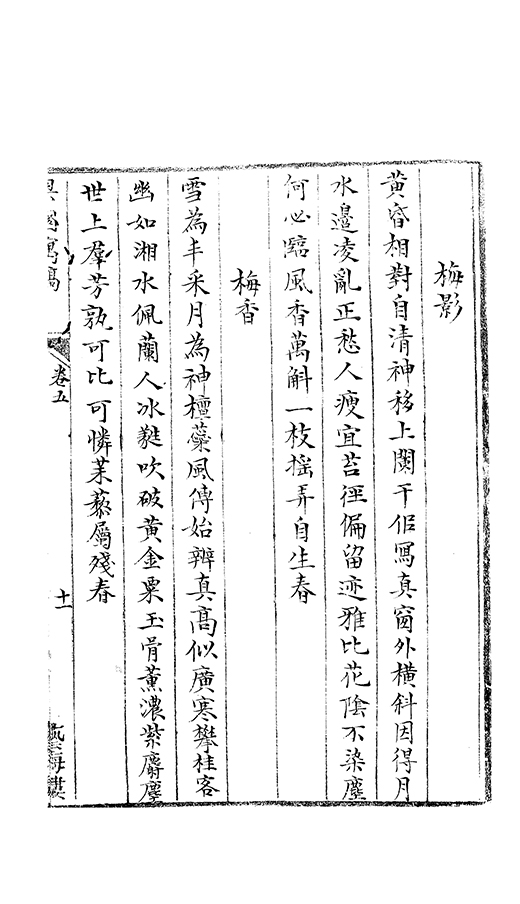 梅影
黃昏相對自清神移上闌干佀寫真窗外橫斜因得月
水邉凌亂正愁人瘦宜苔徑偏留迹雅比花陰不染塵
何必臨風香萬斛一枝搖弄自生春
梅香
雪為丰采月為神檀蘂風傳始辨真高似廣寒攀桂客
幽如湘水佩蘭人冰蕤吹破黃金粟玉骨薰濃紫麝塵
世上羣芳孰可比可憐屬殘春
卷五
十一